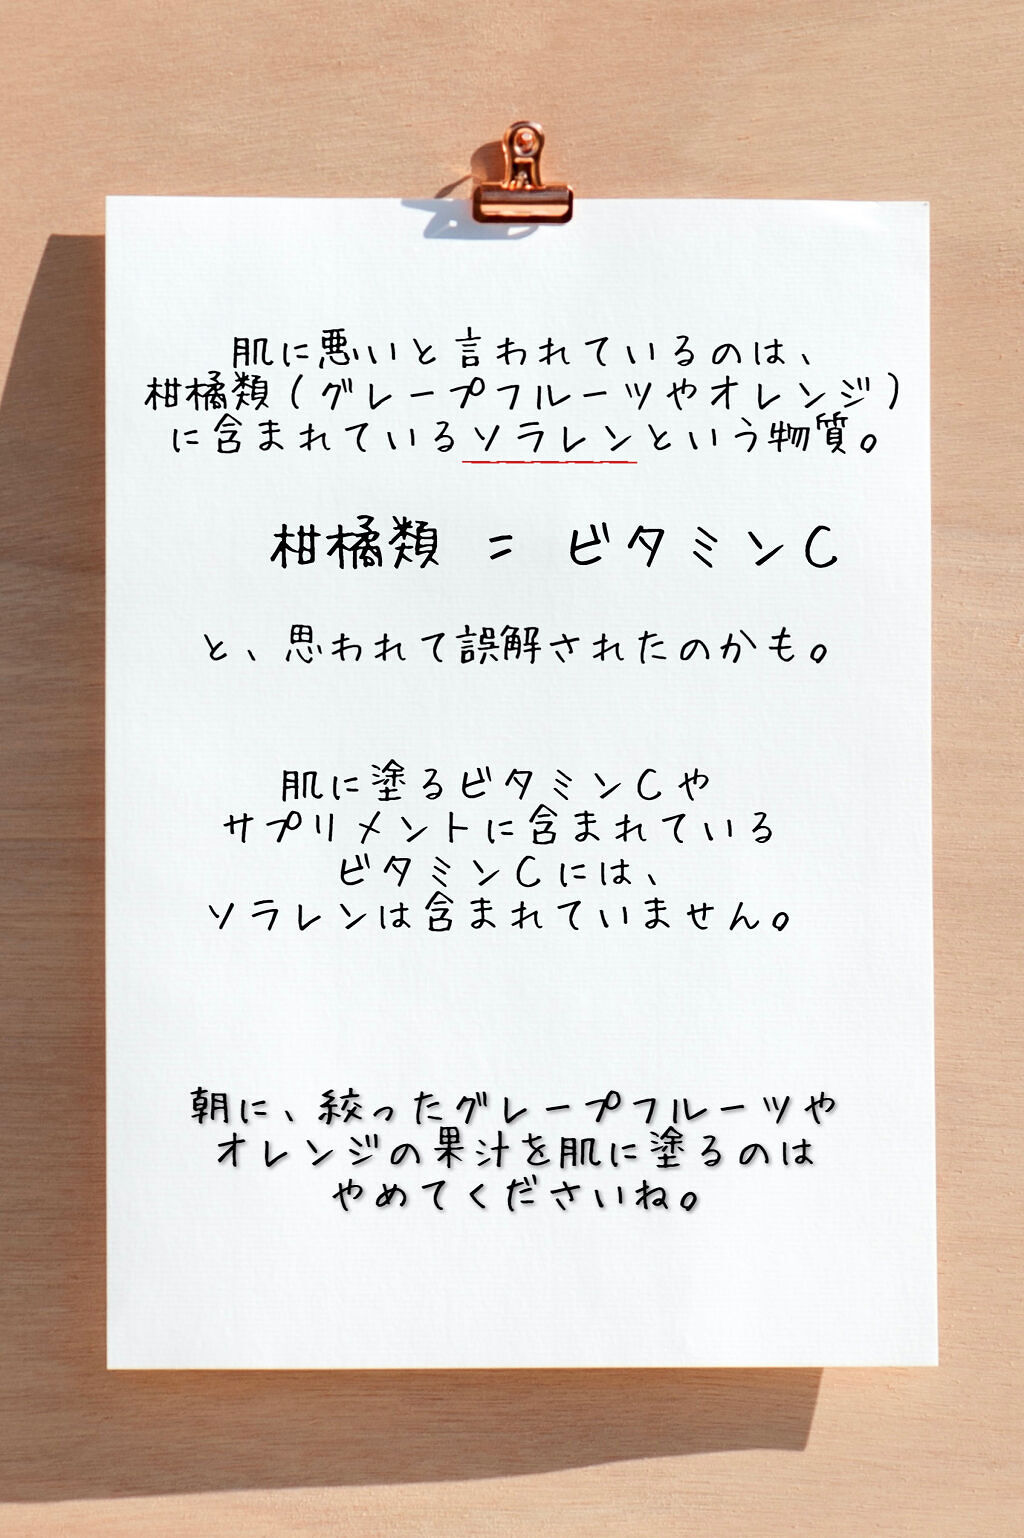 肌に悪いと言われているのは、
柑橘類（グレープフルーツやオレンジ）
に含まれているソラレンという物質。
柑橘類 = ビタミンC
と、思われて誤解されたのかも。
肌に塗るビタミンCや
サプリメントに含まれている
ビタミンCには、
ソラレンは含まれていません。
朝に、絞ったグレープフルーツや
オレンジの果汁を肌に塗るのは
やめてくださいね。